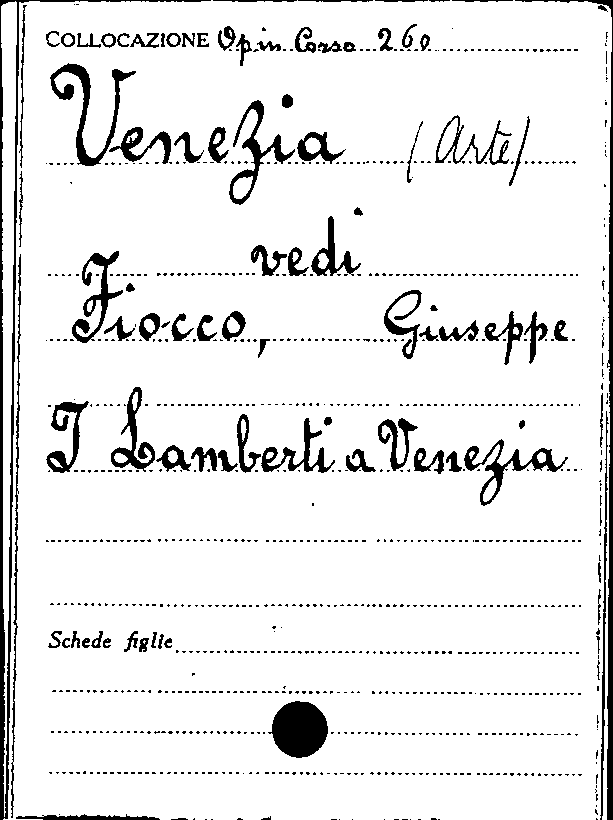 COLLOCAZIONE Op in Corso 260
Venezia (Arte)
vedi
Fiocco, Giuseppe
I Lamberti a Venezia
Schede figlie